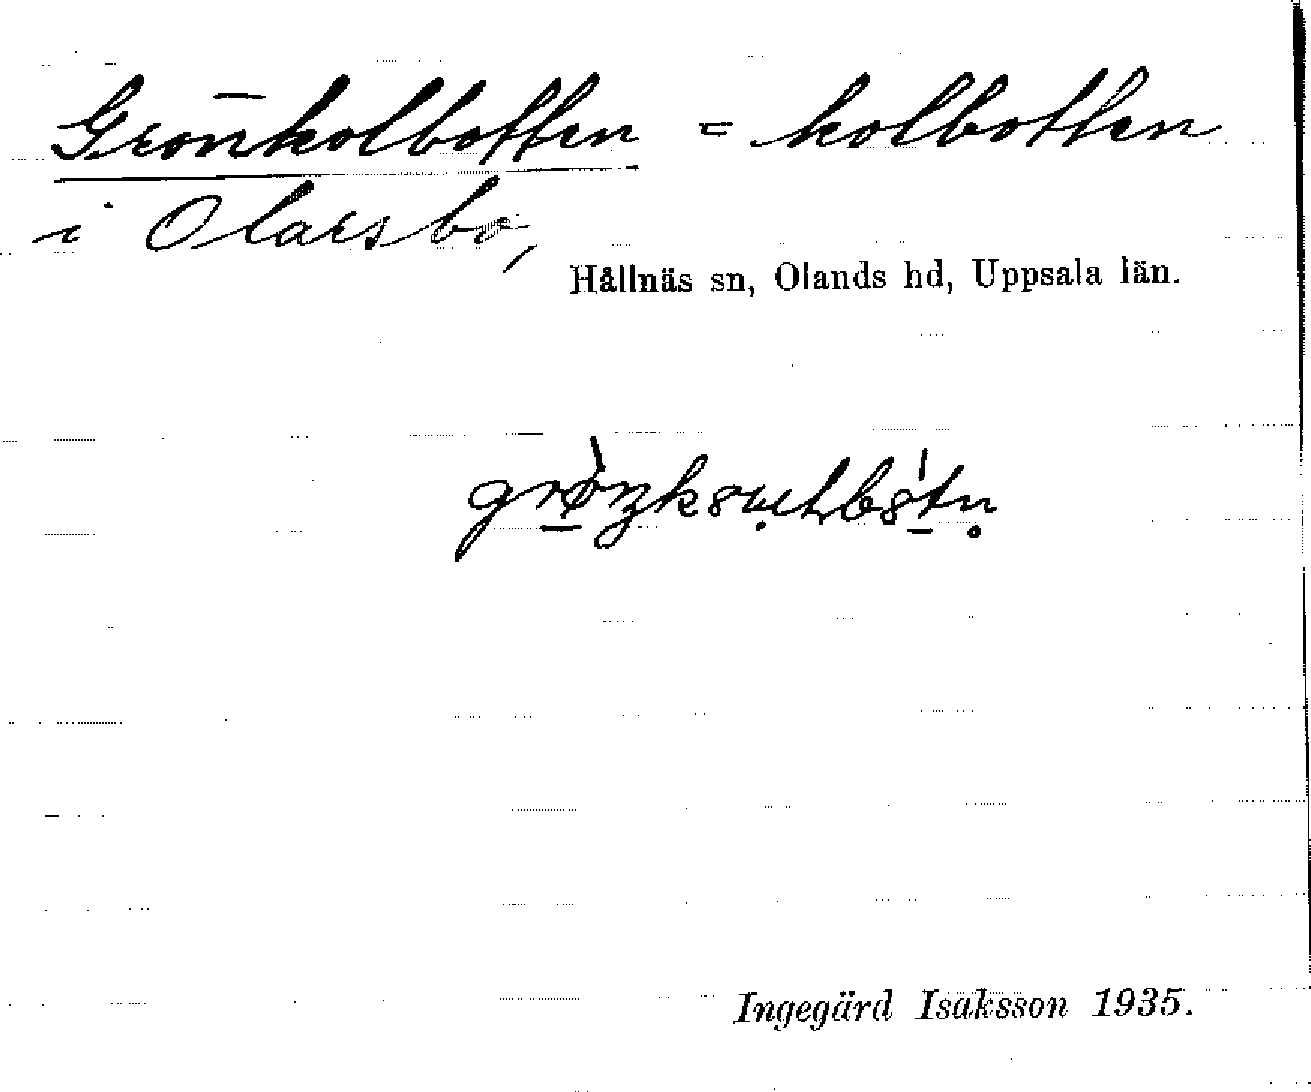 Grönkolbotten = kolbotten
i Olarsbo,
Hållnäs sn, Olands hd, Uppsala län.
Ingegärd Isaksson 1935.